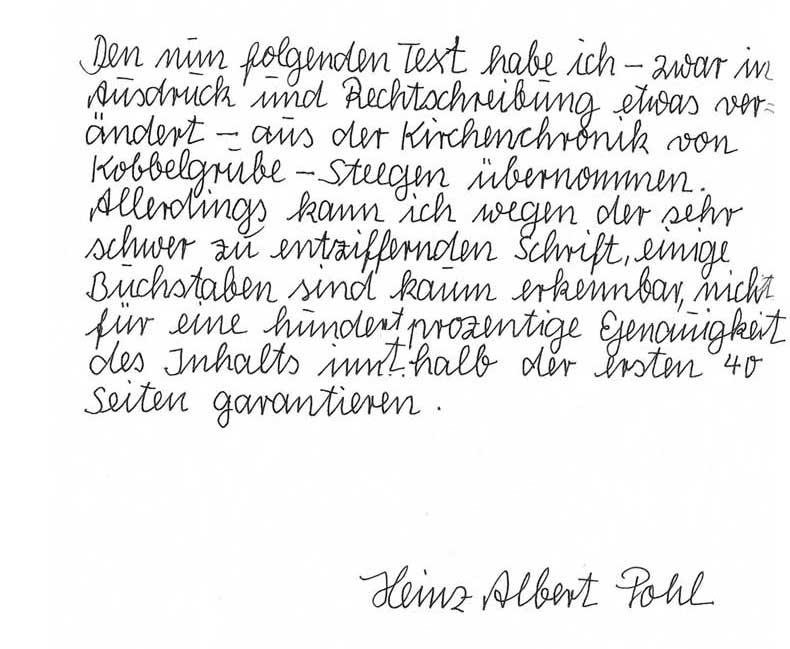 Den nun folgenden Text habe ich – zwar in
Ausdruck und Rechtschreibung etwas ver=
ändert – aus der Kirchenchronik von
Kobbelgrube – Steegen übernommen.
Allerdings kann ich wegen der sehr
schwer zu entziffernden Schrift, einige
Buchstaben sind kaum erkennbar, nicht
für eine hundertprozentige Genauigkeit
des Inhalts innerhalb der ersten 40
Seiten garantieren.
Heinz Albert Pohl